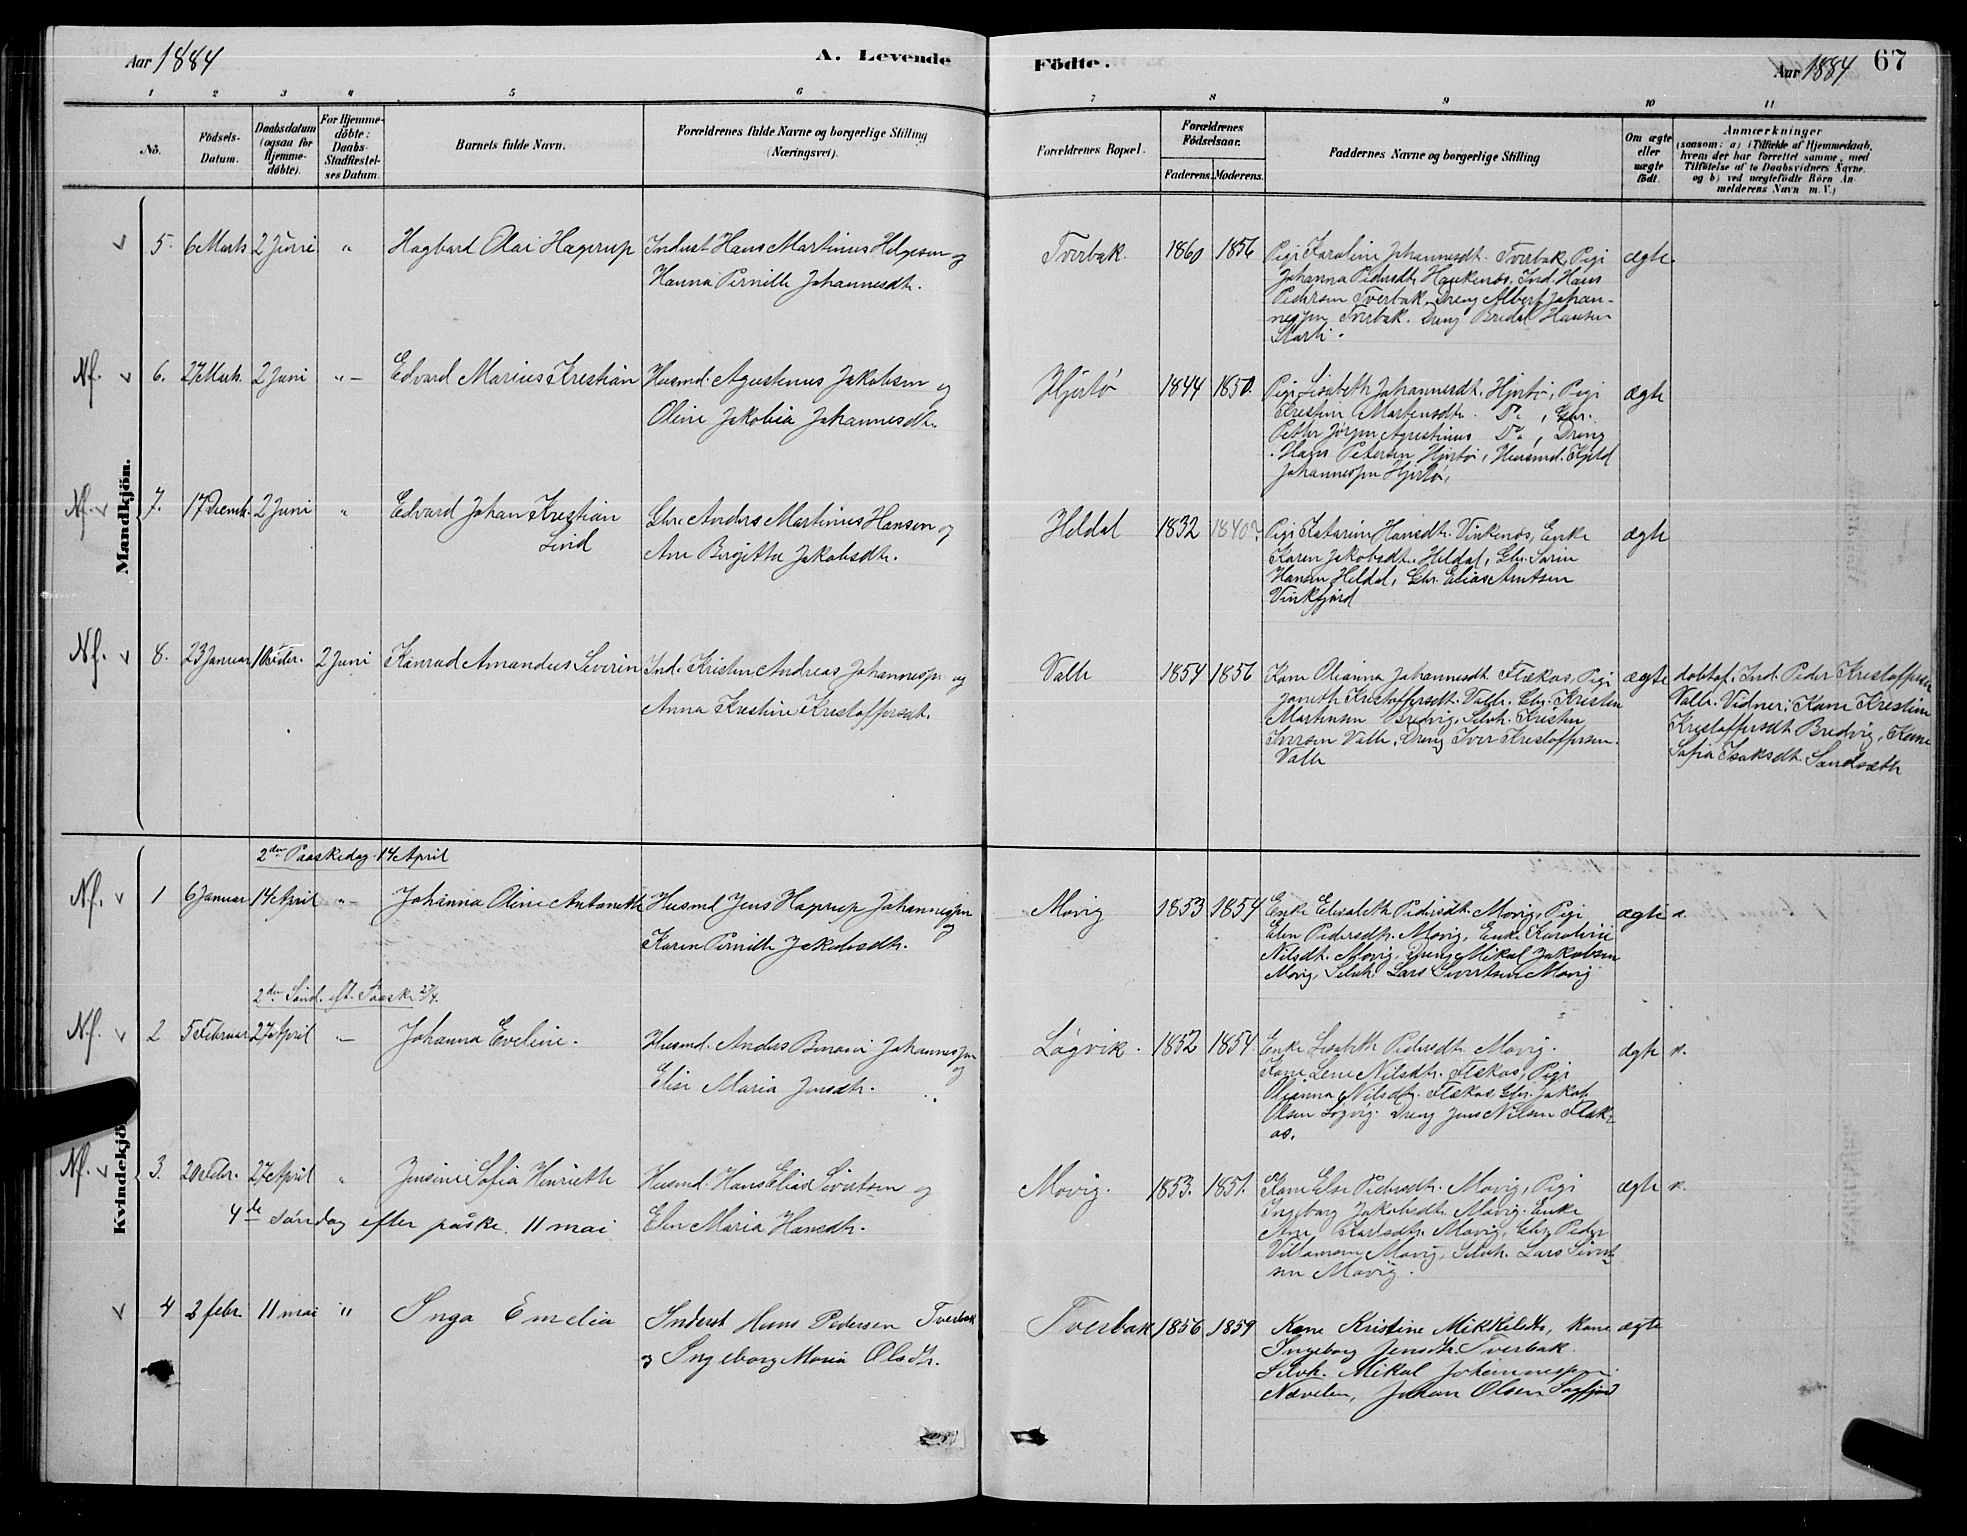 Aar 1884
A. Levende
Födte.
Aar 1884.
67
1 2 3 4 5 6 7 8 9 10 11
No.
Födsels-
Datum.
Daabsdatum
(ogsaa for
Hjemme-
döbte).
For Hjemme-
döbte:
Daabs-
Stadfæstel-
ses Datum.
Barnets fulde Navn.
Forældrenes fulde Navne og borgerlige Stilling
(Næringsvei).
Forældrenes Bopæl.
Forældrenes
Födselsaar.
Faderens. Moderens.
Faddernes Navne og borgerlige Stilling
Om ægte
eller
uægte
födt.
Anmærkninger
(saasom: a) i Tilfælde af Hjemmedaab,
hvem der har forrettet samme, med
Tilföielse af to Daabsvidners Navne,
og b) ved uægtefödte Börn An-
melderens Navn m. V.)
Mandkjön.
5. 6 Marts 2 Juni " Hagbard Olai Hagerup
Inderst Hans Martinus Helgesen og
Hanna Pernille Johannesdtr.
Tverbak. 1860 1856
Pige Karoline Johannesdt. Tverbak, Pige
Johanna Pedersdt. Haukenes, Ind. Hans
Pedersen Tverbak, Dreng Albert Johan-
nesen Tverbak. Dreng Bredal Hansen
ægte.
Nf. 6. 27 Marts. 2 Juni "- Edvard Marius Krestian
Husmd. Agustinus Jakobsen og
Oline Jakobia Johannesdtr.
Hjertö 1844 1850.
Pige Lisabeth Johannesdt. Hjertö, Pige
Krestine Martensdtr. Do, Gbr.
Petter Jörgen Agustinus Do, Dreng
Hans Petersen Hjertö, Husmd.
Johannesen Hjertö,
ægte
Nf. 7. 17 Decemb. 2 Juni " Edvard Johan Krestian
Lind
Gbr. Anders Martinus Hansen og
Ane Birgitta Jakobsdtr.
Heldal 1832 1840?
Pige Katarine Hansdtr. Vinkenes, Enke
Karen Jakobsdt. Heldal, Gbr. Sören
Hansen Heldal, Gbr. Elias Arntsen
Vinkfjord
ægte
Nf. 8. 23 Januar 2 Juni Konrad Amandus Severin
Ind. Kristen Andreas Johannesen og
Anna Krestine Kristoffersdt.
Valle 1854 1856
Kone Olianna Johannesdt. Flekos, Pige
Janeth Kristoffersdt. Valle, Gbr. Kristen
Martinsen Bredvig, Selvh. Kristen
Iversen Valle, Dreng Iver Kristoffersen
Valle
ægte
döbt af Ind. Peder Kristoffersen
Valle. Vidner: Kone Krestine
Kristoffersdt. Bredvig, Kone
Sofia Isaksdt. Sandsæth
Kvindekjö
2den Paaskedag 14 April
Nf. 1 6 Januar 14 April "- Johanna Oline Antoneth
Husmd Jens Hagerup Johannesen
og
Karen Pernille Jakobsdtr.
Movig 1853 1854
Enke Elisabeth Pedersdt. Movig, Pige
Elen Pedersdtr. Movig, Enke Karoline
Nilsdt. Movig, Dreng Mikal Jakobsen
Movig, Selvh. Lars Sivertsen Movig
ægte
2den Sönd. eft. Paaske 27/4.
Nf. 2 5 Februar 27 April "- Johanna Eveline.
Husmd. Anders Johannesen
og
Elise Maria Jensdtr.
Lögvik. 1852 1854
Enke Lisabeth Pedersdt. Movig.
Kone Lene Nilsdtr. Flekos, Pige
Olianna Nilsdt. Flekos, Gbr. Jakob
Olsen Lögvig. Dreng Jens Nilsen Flek-
os.
ægte
Nf. 3. 20 Febr. 27 April " Jensine Sofia Henriette
Husmd. Hans Elias Sivertsen og
Elen Maria Hansdtr.
Movig. 1853. 1851.
Kone Else Pedersdtr. Movig, Pige
Ingeborg Jakobsdt. Movig, Enke
Ane Karlsdtr. Movig, Gbr. Peder
Villumsen Movig, Selvh. Lars Sivert-
sen Movig.
ægte
4de söndag efter påske. 11 mai
4 2 febr. 11 mai " Inga Emelia
Inderst Hans Pedersen Tverbak
og Ingeborg Maria Olsdtr.
Tverbak 1856 1859
Kone Kristine Mikkelsdtr, kone
Ingeborg Jensdtr. Tverbak.
Selvh. Mikal Johannesen
Nævelen, Johan Olsen Sagfjord
ægte